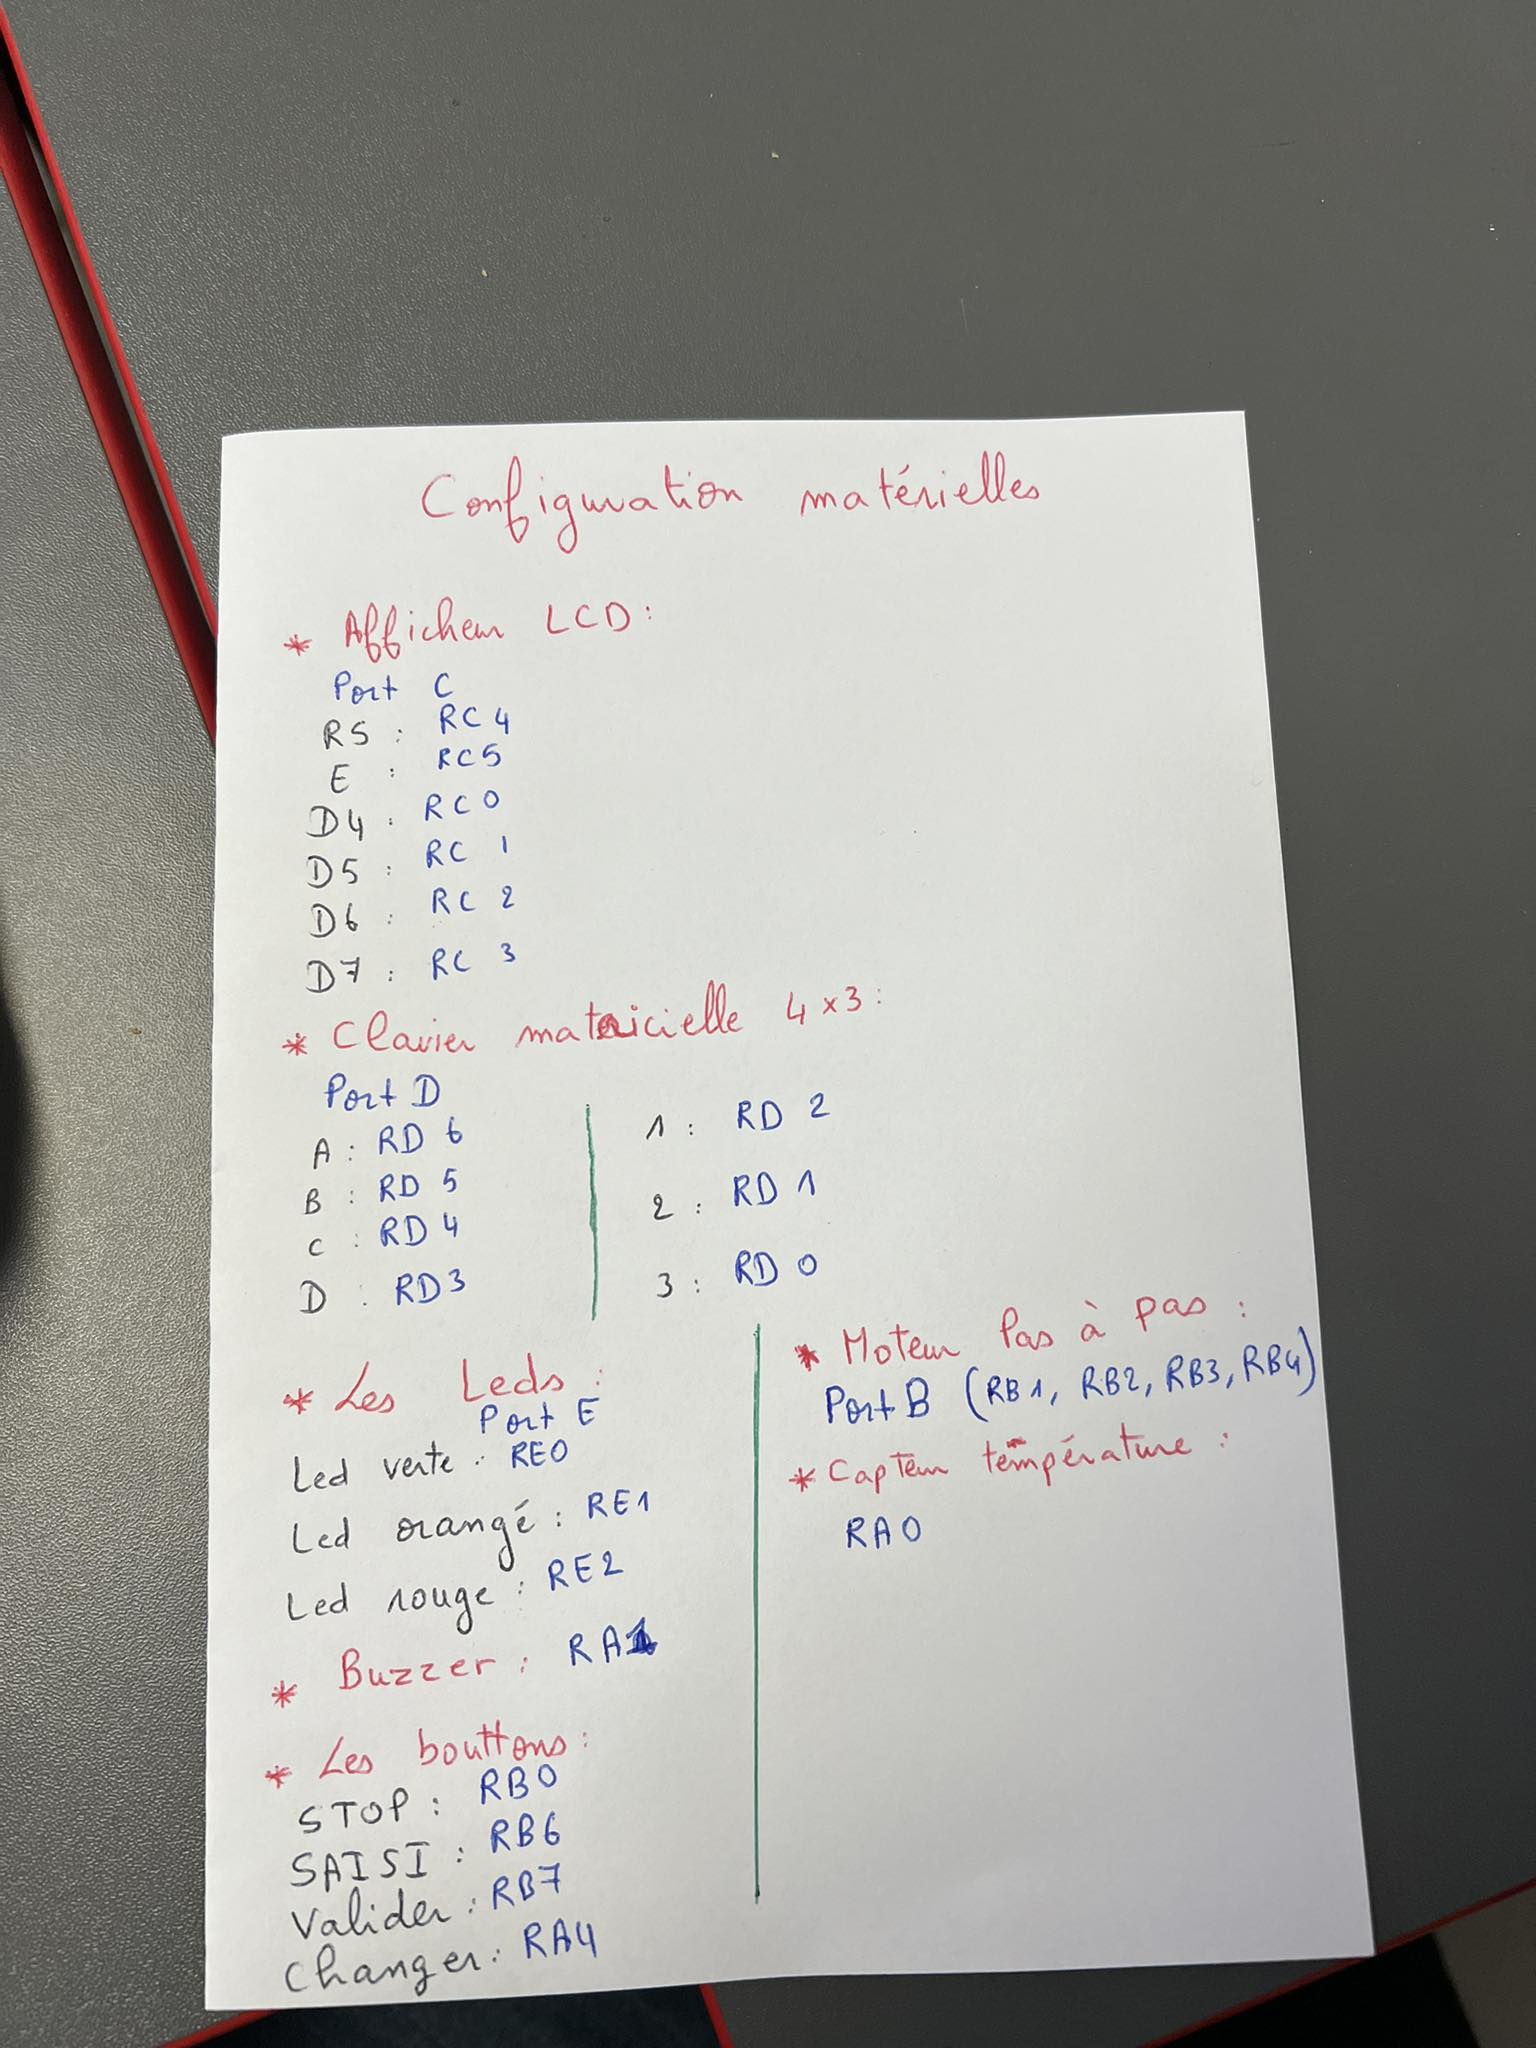 Configuration matérielles
* Afficheur LCD:
Port C
RS : RC4
E : RC5
D4 : RC0
D5 : RC 1
D6 : RC 2
D7 : RC 3
* Clavier matricielle 4x3:
Port D
A : RD 6
B : RD 5
C : RD 4
D : RD3
1 : RD 2
2 : RD 1
3 : RD 0
* Les Leds :
Port E
Led verte : RE0
Led orangé : RE1
Led rouge : RE2
* Buzzer : RA1
* Les bouttons :
STOP : RB0
SAISI : RB6
Valider : RB7
Changer : RA4
* Moteur Pas à pas :
Port B (RB1, RB2, RB3, RB4)
* Capteur température :
RA0